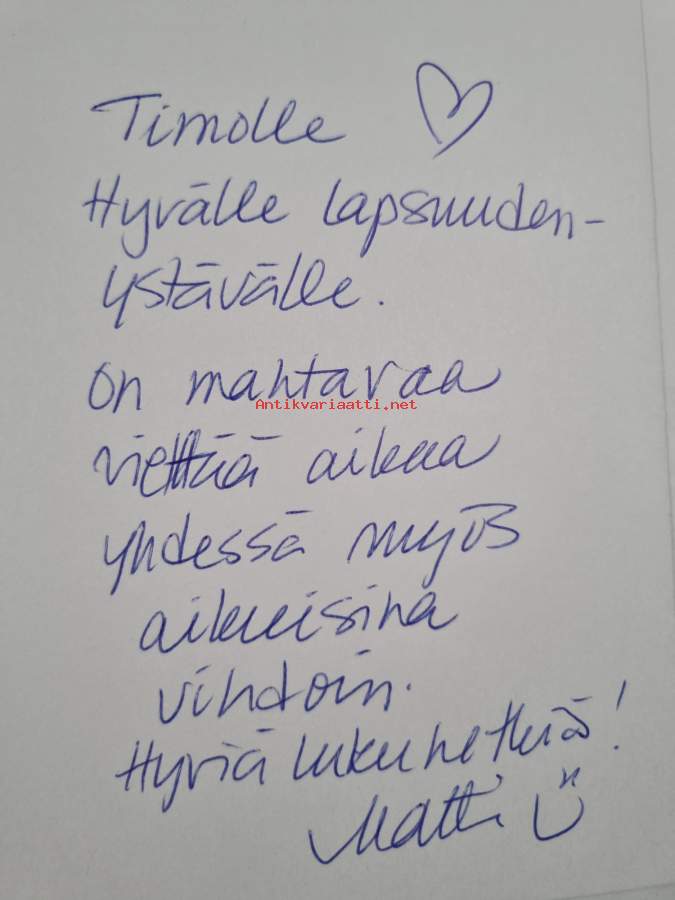 Timolle ♡
Hyvälle lapsuuden-
ystävälle.
On mahtavaa
Antikvariaatti.net
viettää aikaa
yhdessä myös
aikuisina
vihdoin.
Hyviä lukuhetkiä!
Matti